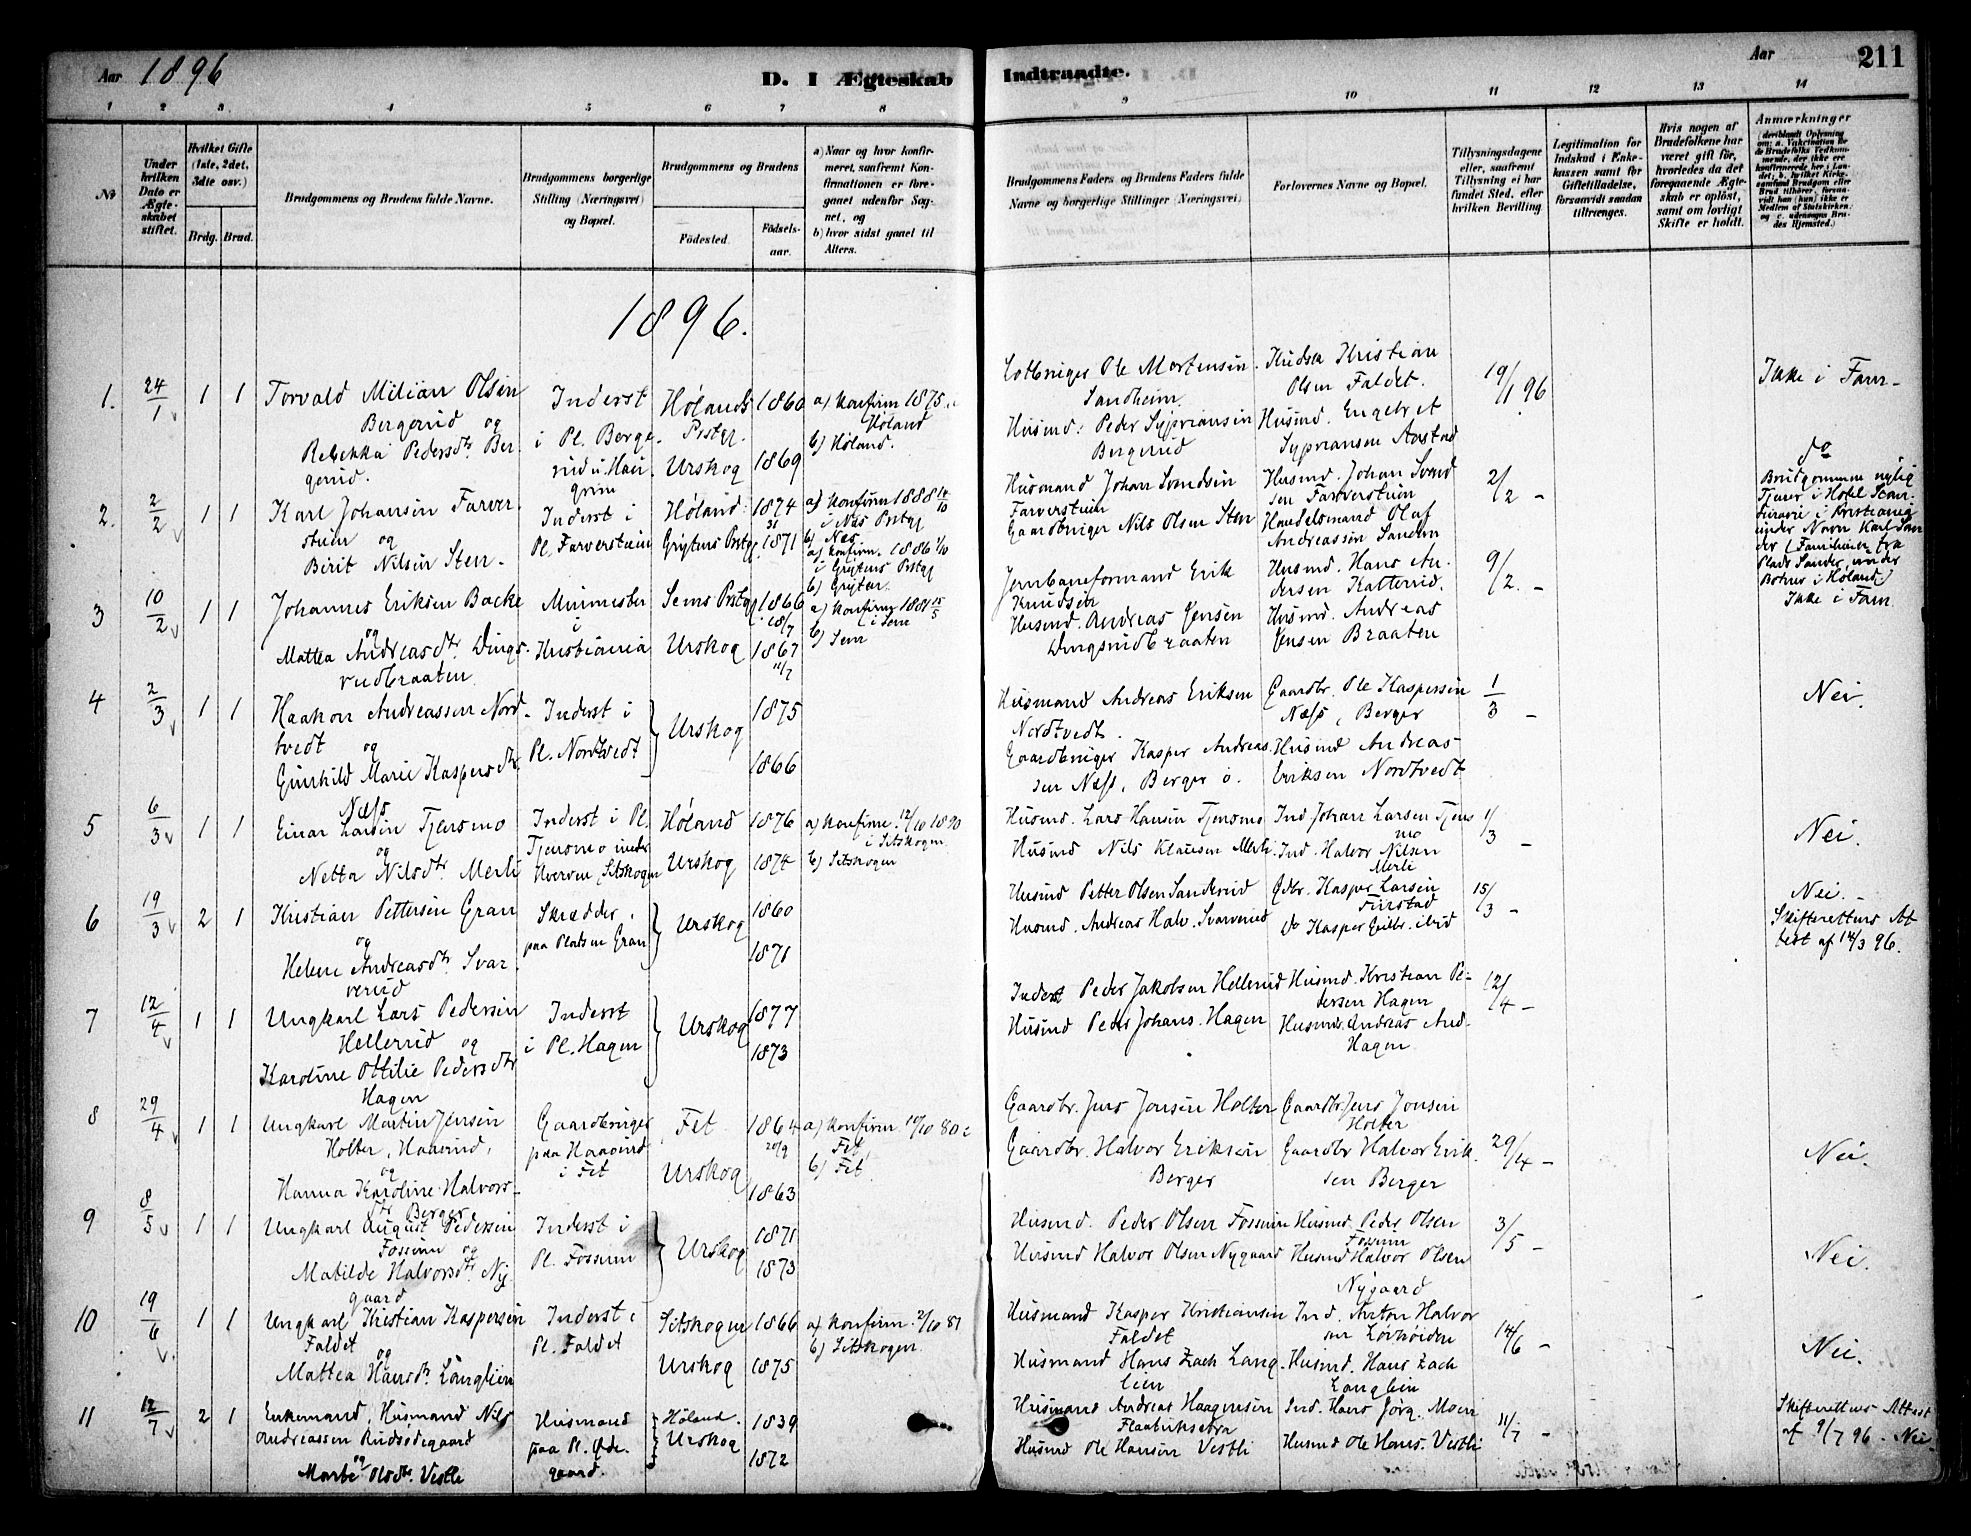 Aar 1896
D. I Ægteskab Indtraadte.
Aar 211
1 2 3 4 5 6 7 8 9 10 11 12 13 14
No
Under hvilken Dato er Ægteskabet stiftet.
Hvilket Gifte (1ste, 2det, 3dte osv.)
Brdg. Brud.
Brudgommens og Brudens fulde Navne.
Brudgommens borgerlige Stilling (Næringsvei) og Bopæl.
Brudgommens og Brudens
Fødested.
Fødselsaar.
a) Naar og hvor konfirmeret, saafremt Konfirmationen er foregaaet udenfor Sognet, og
b) hvor sidst gaaet til Alters.
Brudgommens Faders og Brudens Faders fulde Navne og borgerlige Stillinger (Næringsvei)
Forlovernes Navne og Bopæl.
Tillysningsdagene eller, saafremt Tillysning ei har fundet Sted, efter hvilken Bevilling
Legitimation for Indskud i Enkekassen samt for Giftetilladelse, forsaavidt saadan tiltrænges.
Hvis nogen af Brudefolkene har været gift før, hvorledes da det foregaaende Ægteskab er opløst, samt om lovligt Skifte er holdt.
Anmærkninger
1896.
1. 24/1 1 1
Torvald Milian Olsen
Bergerud og
Rebekka Pedersdtr. Bergerud.
Inderst
i Pl. Bergerud u. Haugrim
Hølands Prstgj.
Urskog
1860
1869
a) Konfirm 1875
Høland
b) Høland.
Selveier Ole Mortensen
Sandheim
Husmd: Peder Sypriansen
Bergerud
Husmd. Kristian
Olsen Faldet.
Husmd. Engebret
Sypriansen Aarstad
19/1 96
Ikke i Fam-
2. 2/2 1 1
Karl Johansen Farverstuen og
Birit Nilsen Sten.
Inderst i
Pl. Farverstuen
Høland
Grytens Prstgj.
1874
1871
a) Konfirm 1888 14/10
i Næs Prstgj
b) Næs
a) Konfirm. 1886 1/10
i Grytens Prstgj
b) Gryten
Husmand Johan Svendsen
Farverstuen
Gaardbruger Nils Olsen Sten
Husmd. Johan Svendsen Farverstuen
Handelsmand Olaf
Andreassen Sanden
2/2 -
do
Brudgommen nylig
Tjener i Hotel Scandinavie i Kristiania
under Navn Karl Sander (Familien fra
Plads Sander under
Botner i Høland)
3 10/2 1 1
Johannes Eriksen Bakke
og
Mattea Andreasdtr. Dingsrudbraaten
Murmester
i
Kristiania
Sems Prstgj.
Urskog
1866
18/7
1867
11/7
a) Konfirm 1881 15/5
i Sem
b) Sem
Jernbaneformand Erik
Knudsen
Husmd. Andreas Jensen
Dingsrudbraaten
Husmd. Hans Andersen Katterud.
Husmd. Andreas
Jensen Braaten
9/2. -
Ikke i Fam
4 2/3 1 1
Haakon Andreassen Nordtvedt og
Gunhild Marie Kaspersdtr.
Næss
Inderst i
Pl. Nordtvedt
Urskog
1875
1866
Husmand Andreas Eriksen
Nordtvedt.
Gaardbruger Kasper Andreassen Næss, Berger ø.
Gaardbr. Ole Kaspersen
Næss, Berger
Husmd Andreas
Eriksen Nordtvedt
1/3 -
Nei.
5 6/3 1 1
Einar Larsen Tjensmo
og
Netta Nilsdtr. Merli
Inderst i Pl.
Tjensmo under
Kverven, Sitskogen
Høland
Urskog
1876
1874
a) Konfirm. 12/10 1890
i Sitskogen
b) Sitskogen
Husmd. Lars Hansen Tjensmo
Husmd Nils Klausen Merli
Ind Johan Larsen Tjensmo
Ind. Halvor Nilsen
Merli
1/3 -
Nei.
6 19/3 2 1
Kristian Pettersen Gran
og
Helene Andreasdtr. Svarverud
Skrædder
paa Pladsen Gran
Urskog
1860
1871
Husmd Petter Olsen Sanderud
Husmd. Andreas Halv. Svarverud
Gdbr. Kasper Larsen
Finstad
do Kasper Gulbr. ibid
15/3 -
Nei. -
Skifterettens Attest af 14/3 96.
7 12/4 1 1
Ungkarl Lars Pedersen
Hellerud og
Karoline Ottilie Pedersdtr
Hagen
Inderst
i Pl. Hagen
Urskog
1877
1873
Inderst Peder Jakobsen Hellerud
Husmd Peder Johans. Hagen
Husmd. Kristian Pedersen Hagen
Husmd. Andreas And.
Hagen
12/4 -
8 29/4 1 1
Ungkarl Martin Jensen
Holter, Haavind,
og
Hanna Karoline Halvorsdtr. Berger
Gaardbruger
paa Haavind
i Fet
Fet
Urskog
1864
20/9
1863
a) Konfirm 10/10 80
Fet
b) Fet
Gaardbr. Jens Jonsen Holter
Gaardbr. Halvor Eriksen
Berger
Gaardbr Jens Jonsen
Holter
Gaardbr Halvor Eriksen Berger
29/4 -
Nei.
9 8/5 1 1
Ungkarl August Pedersen
Fossum og
Matilde Halvorsdtr. Nygaard
Inderst i
Pl. Fossum
Urskog
1871
1873
Husmd. Peder Olsen Fossum
Husmd Halvor Olsen Nygaard
Husmd. Peder Olsen
Fossum
Husmd Halvor Olsen
Nygaard
3/5 -
Nei.
10 19/6 1 1
Ungkarl Kristian Kaspersen
Faldet og
Mattea Hansdtr. Langlien
Inderst i
Pl. Faldet
Sitskogen
Urskog
1866
1875
a) Konfirm. 2/10 81
b) Sitskogen
Husmand Kasper Kristiansen
Faldet
Husmand Hans Zach Langlien
Ind. Anton Halvorsen Løvhøiden
Husmd. Hans Zach
Langlien
14/6 -
Nei.
11 12/7 2 1
Enkemand, Husmand Nils
Andreassen Rudsødegaard
og
Marte Olsdtr. Vestli
Husmand
paa Pl. Ødegaard.
Høland.
Urskog
1839
1872
Husmand Andreas Haagensen
Flaabæksetra
Husmd Ole Hansen Vestli
Ind. Hans Jørg. Moen
Husmd Ole Hans. Vestli
11/7 -
Skifterettens Attest
af 9/7 96. Nei.